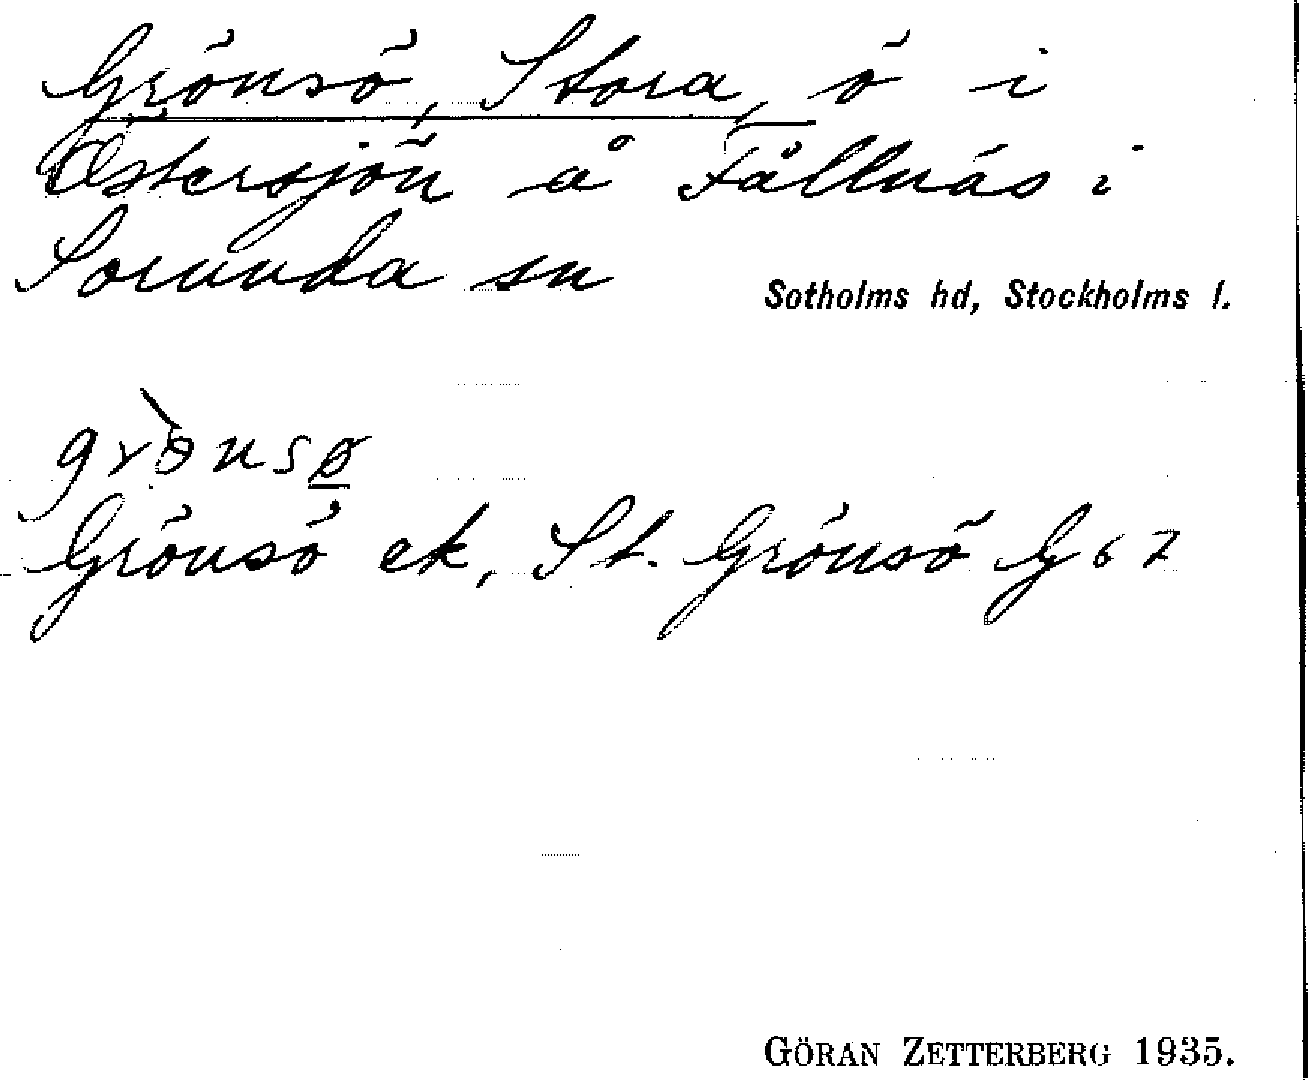 Grönsö, Stora, ö i
Östersjön å Fållnäs i
Sorunda sn
Sotholms hd, Stockholms l.
grö̀nsø
Grönsö ek, St. Grönsö G 62
GÖRAN ZETTERBERG 1935.